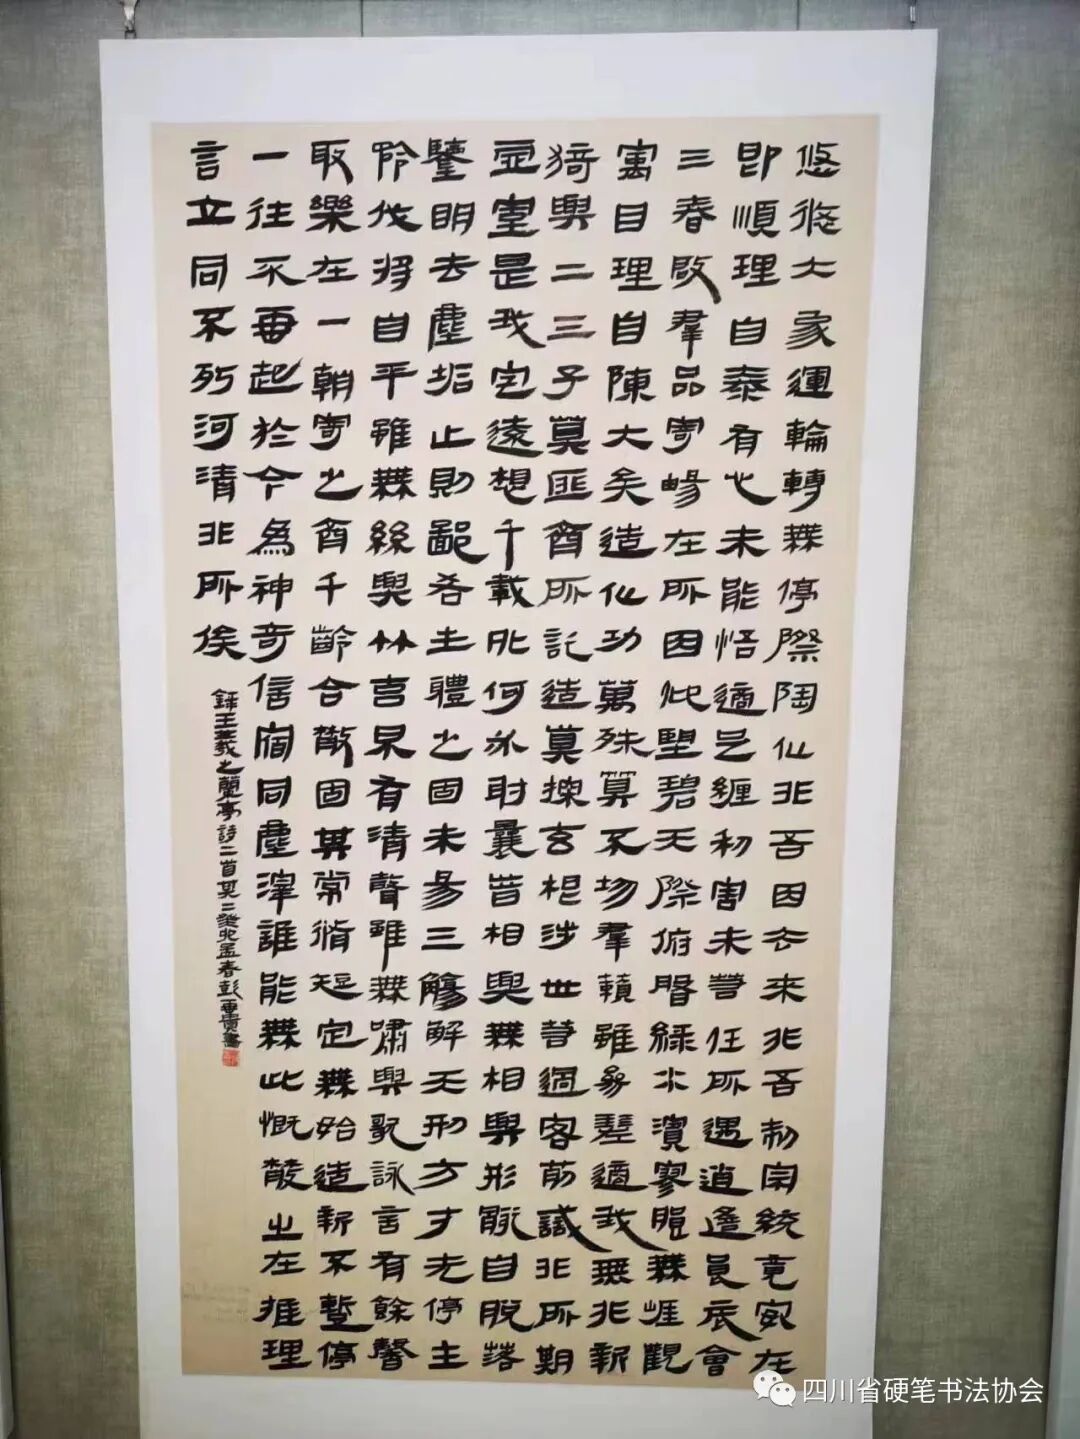 悠悠大象運輪轉無停際陶化非吾因去來非吾制宗統竟安在
即順理自泰有心未能悟適足纏利害未若任所遇逍遙良辰會
三春啟羣品寄暢在所因仰望碧天際俯綠水濱寥朗無涯觀
寓目理自陳大矣造化功萬殊莫不均羣籟雖參差適我無非新
猗與二三子莫匪齊所託造真探玄根涉世若過客前識非所期
虛室是我宅遠想千載外何必謝曩昔相與無相與形骸自脫落
鑒明去塵垢止則鄙吝生體之固未易三觴解天刑方寸無停主
矜伐將自平雖無絲與竹玄泉有清聲雖無嘯與歌詠言有餘馨
取樂在一朝寄之齊千齡合散固其常脩短定無始造新不暫停
一往不再起於今為神奇信宿同塵滓誰能無此慨散之在推理
言立同不朽河清非所俟
錄王羲之蘭亭詩二首其二癸卯孟春彭貴書
四川省硬笔书法协会